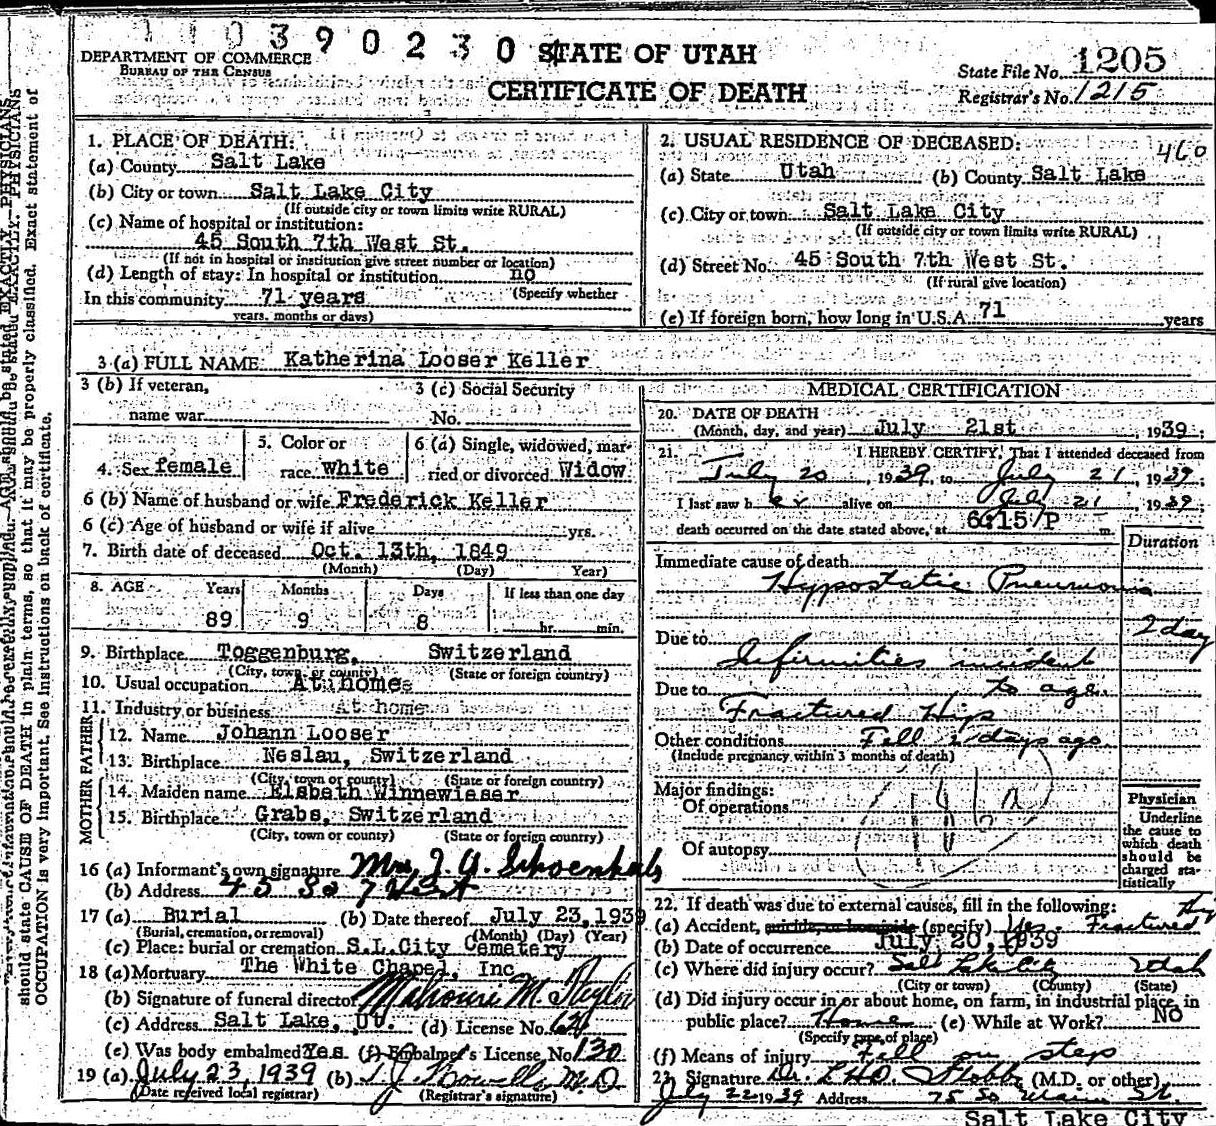 1 1 0 3 9 0 2 3 0 4
STATE OF UTAH
CERTIFICATE OF DEATH
DEPARTMENT OF COMMERCE
BUREAU OF THE CENSUS
State File No. 1205
Registrar's No. 1215
should state CAUSE OF DEATH in plain terms, so that it may be properly classified. Exact statement of
OCCUPATION is very important. See instructions on back of certificate.
1. PLACE OF DEATH:
(a) County Salt Lake
(b) City or town Salt Lake City
(If outside city or town limits write RURAL)
(c) Name of hospital or institution:
45 South 7th West St.
(If not in hospital or institution give street number or location)
(d) Length of stay: In hospital or institution no
(Specify whether
In this community 71 years
years, months or days)
2. USUAL RESIDENCE OF DECEASED: 460
(a) State Utah (b) County Salt Lake
(c) City or town Salt Lake City
(If outside city or town limits write RURAL)
(d) Street No. 45 South 7th West St.
(If rural give location)
(e) If foreign born, how long in U.S.A. 71 years
3 (a) FULL NAME Katherina Looser Keller
3 (b) If veteran,
name war
3 (c) Social Security
No.
4. Sex female
5. Color or
race white
6 (a) Single, widowed, mar-
ried or divorced Widow
6 (b) Name of husband or wife Frederick Keller
6 (c) Age of husband or wife if alive yrs.
7. Birth date of deceased Oct. 13th, 1849
(Month) (Day) Year)
8. AGE Years Months Days If less than one day
89 9 8 hr. min.
9. Birthplace Toggenburg, Switzerland
(City, town, or county) (State or foreign country)
10. Usual occupation At home
11. Industry or business At home
FATHER
12. Name Johann Looser
13. Birthplace Neslau, Switzerland
(City, town or county) (State or foreign country)
MOTHER
14. Maiden name Elsbeth Winnewieser
15. Birthplace Grabs, Switzerland
(City, town or county) (State or foreign country)
16 (a) Informant's own signature Mrs. J. G. Schoenhals
(b) Address 45 So 7 West
17 (a) Burial (b) Date thereof July 23, 1939
(Burial, cremation, or removal) (Month) (Day) (Year)
(c) Place: burial or cremation S.L.City Cemetery
18 (a) Mortuary The White Chapel, Inc
(b) Signature of funeral director
(c) Address Salt Lake, Ut. (d) License No.
(e) Was body embalmed Yes (f) Embalmer's License No. 130
19 (a) July 23, 1939 (b) M.D.
(Date received local registrar) (Registrar's signature)
MEDICAL CERTIFICATION
20. DATE OF DEATH
(Month, day, and year) July 21st, 1939;
21. I HEREBY CERTIFY, That I attended deceased from
July 20, 1939, to July 21, 1939;
I last saw her alive on July 21, 1939;
death occurred on the date stated above, at 6:15 P m.
Duration
Immediate cause of death
Hypostatic Pneumonia
2 day
Due to
Infirmities incident
Due to to age
Fractured Hip
Other conditions Fell 2 days ago
(Include pregnancy within 3 months of death)
Major findings:
Of operations
Of autopsy
Physician
Underline
the cause to
which death
should be
charged sta-
tistically
22. If death was due to external causes, fill in the following:
(a) Accident, suicide, or homicide (specify) Yes. Fractured
(b) Date of occurrence July 20, 1939
(c) Where did injury occur? Salt Lake City Utah
(City or town) (County) (State)
(d) Did injury occur in or about home, on farm, in industrial place, in
public place? Home (e) While at Work? No
(Specify type of place)
(f) Means of injury Fell on step
23. Signature Dr. (M.D. or other)
July 22 1939 Address 75 So Main St.
Salt Lake City